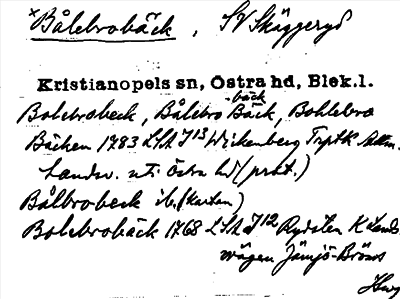 ×Bålebrobäck, SV Skäggeryd
Kristianopels sn, Östra hd, Blek.l.
Bolebrobeck, Bålebro Bäck, -bäck Bohlebro
Bäcken 1783 LSA J13 Wickenberg Trptk Attm.
Landsv. uti Östra hd (prot.)
Bålbrobeck ib. (kartan)
Bolebrobäck 1768 LSA J12 Rydelen K Lands
wägen Jämjö-Bröms